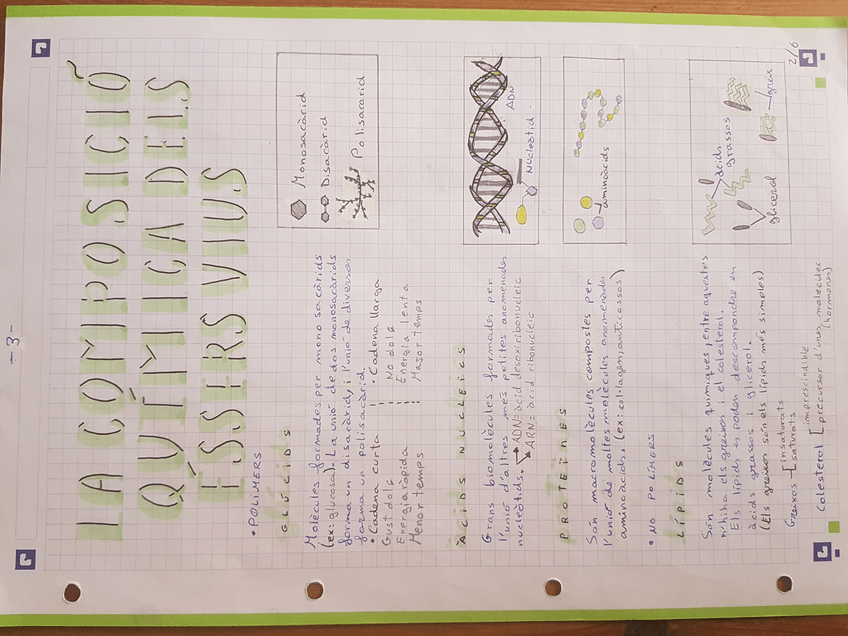 -3-
LA COMPOSICIÓ
QUÍMICA DELS
ÉSSERS VIUS
• POLÍMERS
GLÚCIDS
Molècules formades per monosacàrids
(ex: glucosa). La unió de dos monosacàrids
forma un disacàrid, i l'unió de diversos
forma un polisacàrid.
• Cadena curta
Gust dolç
Energia ràpida
Menor temps
• Cadena llarga
No dolç
Energia lenta
Major temps
Monosacàrid
Disacàrid
Polisacarid
ÀCIDS NUCLEICS
Grans biomolècules formades per
l'unió d'altres més petites anomenades
nucleòtids.
ADN= àcid desoxiribonucleic
ARN= àcid ribonucleic
ADN
Nucleòtid
PROTEÏNES
Són macromolècules compostes per
l'unió de moltes molècules anomenades
aminoàcids. (ex: col·lagen, anticossos)
aminàcids
• NO POLÍMERS
LÍPIDS
Són molècules químiques, entre aquestes
hi ha els greixos i el colesterol.
Els lípids es poden descompondre en
àcids grassos i glicerol.
(Els greixos són els lípids més simples)
Greixos [insaturats
saturats
Colesterol [imprescindible
precursor d'unes molècules
(hormones)
àcids
grassos
glicerol
greix
2/6